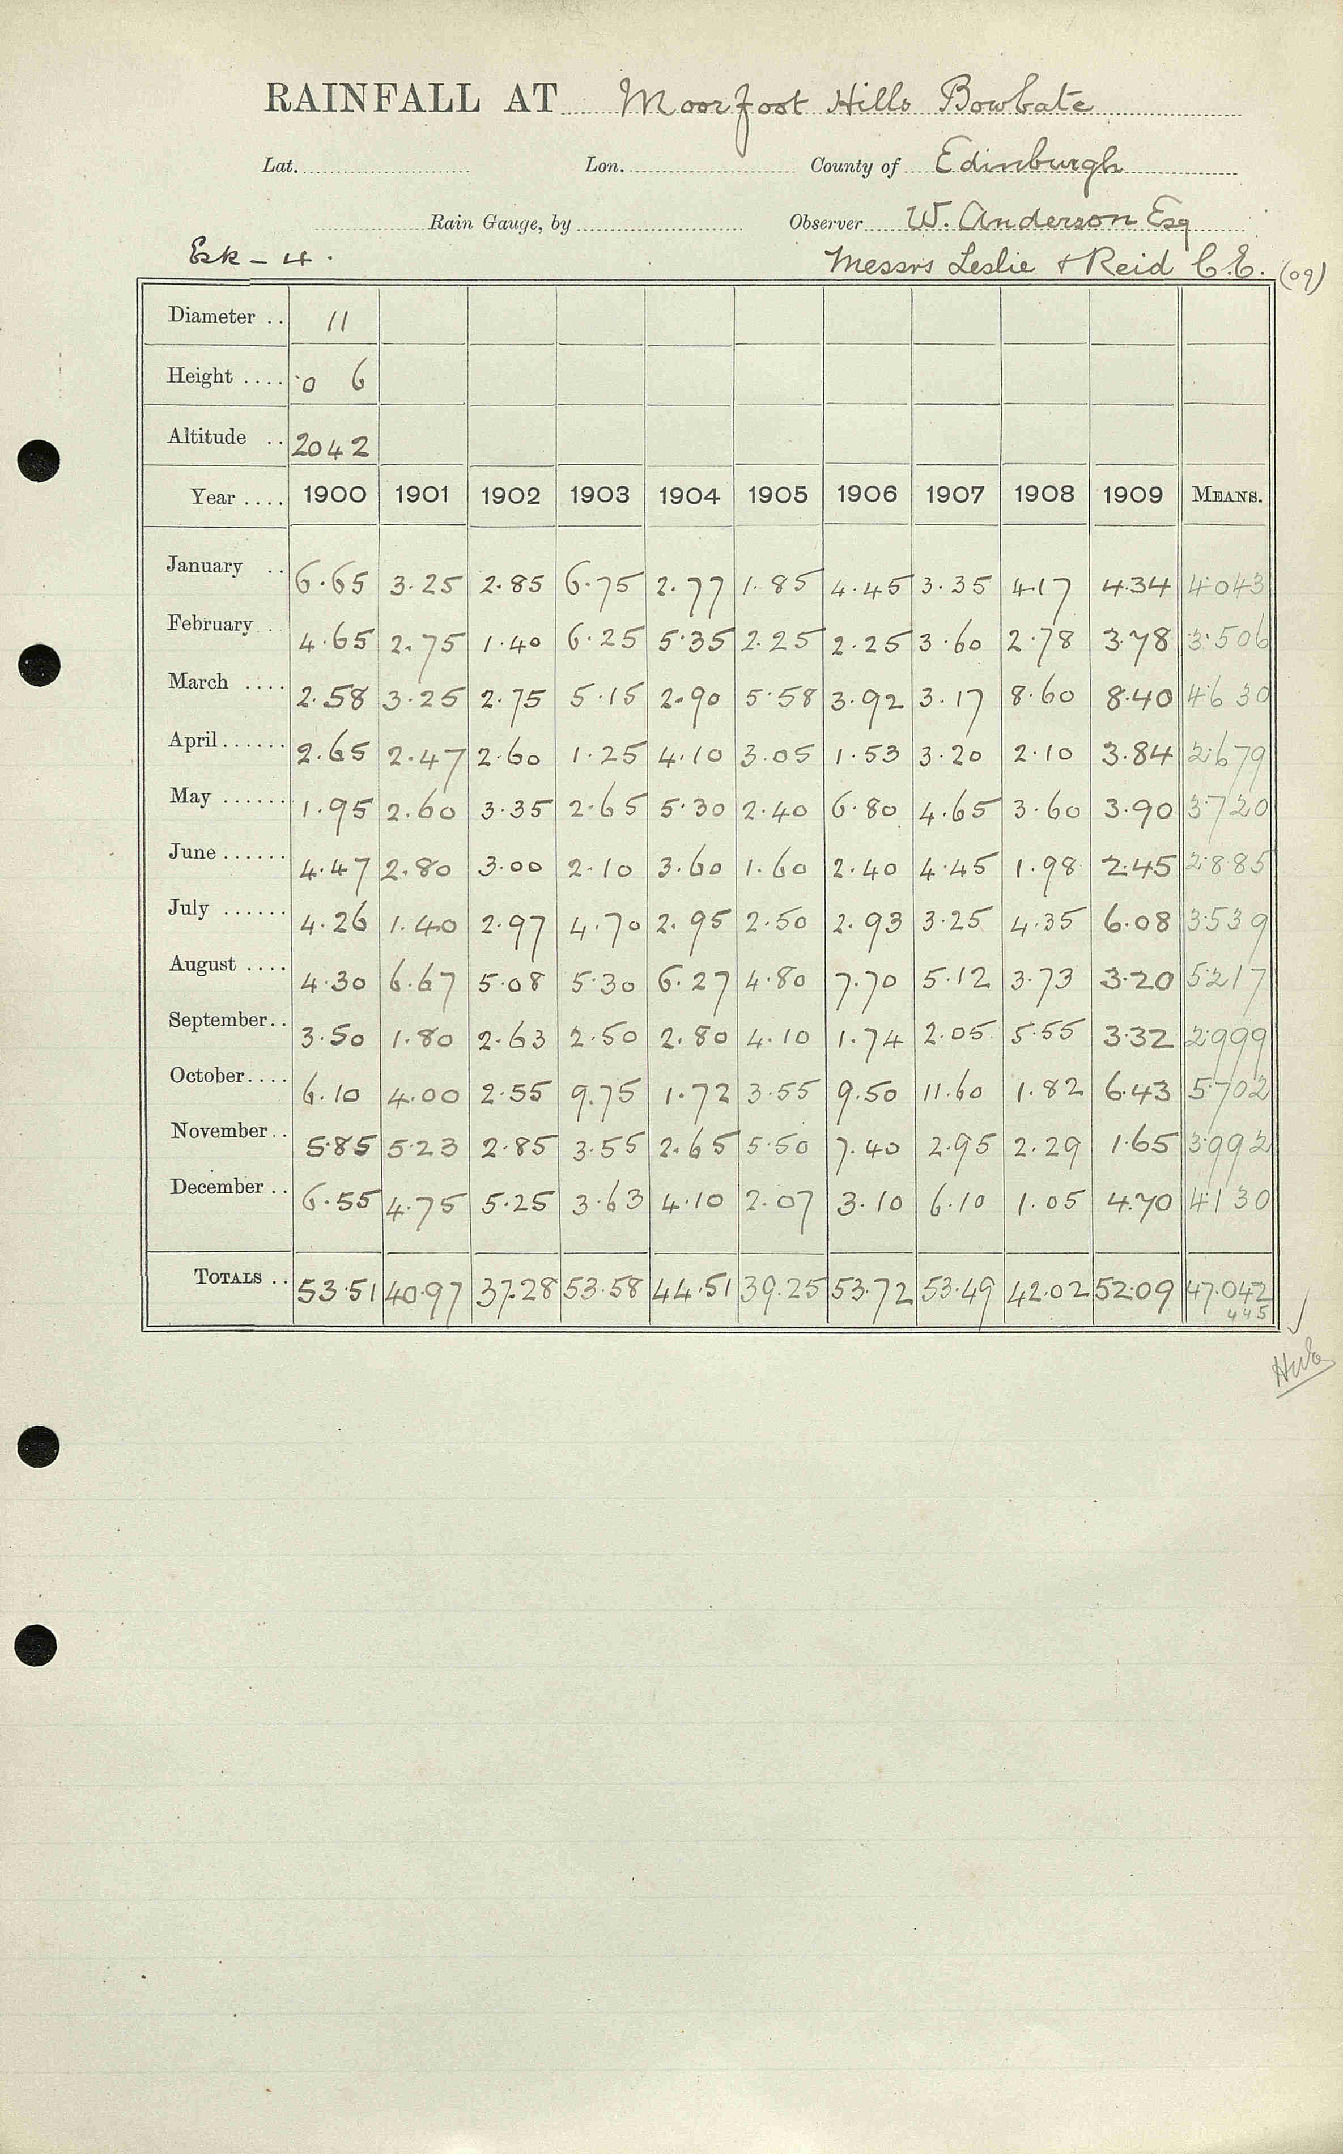 RAINFALL AT Moorfoot Hills Bowbate
Lat. Lon. County of Edinburgh
Rain Gauge, by Observer W. Anderson Esq
Esk - 4. Messrs Leslie & Reid C.E. (09)
Diameter .. 11
Height .... 0 6
Altitude .. 2042
Year .... 1900 1901 1902 1903 1904 1905 1906 1907 1908 1909 MEANS.
January .. 6.65 3.25 2.85 6.75 2.77 1.85 4.45 3.35 4.17 4.34 4.043
February .. 4.65 2.75 1.40 6.25 5.35 2.25 2.25 3.60 2.78 3.78 3.506
March .... 2.58 3.25 2.75 5.15 2.90 5.58 3.92 3.17 8.60 8.40 4.630
April ...... 2.65 2.47 2.60 1.25 4.10 3.05 1.53 3.20 2.10 3.84 2.679
May ...... 1.95 2.60 3.35 2.65 5.30 2.40 6.80 4.65 3.60 3.90 3.720
June ...... 4.47 2.80 3.00 2.10 3.60 1.60 2.40 4.45 1.98 2.45 2.885
July ...... 4.26 1.40 2.97 4.70 2.95 2.50 2.93 3.25 4.35 6.08 3.539
August .... 4.30 6.67 5.08 5.30 6.27 4.80 7.70 5.12 3.73 3.20 5.217
September .. 3.50 1.80 2.63 2.50 2.80 4.10 1.74 2.05 5.55 3.32 2.999
October .... 6.10 4.00 2.55 9.75 1.72 3.55 9.50 11.60 1.82 6.43 5.702
November .. 5.85 5.23 2.85 3.55 2.65 5.50 7.40 2.95 2.29 1.65 3.992
December .. 6.55 4.75 5.25 3.63 4.10 2.07 3.10 6.10 1.05 4.70 4.130
TOTALS .. 53.51 40.97 37.28 53.58 44.51 39.25 53.72 53.49 42.02 52.09 47.042
445